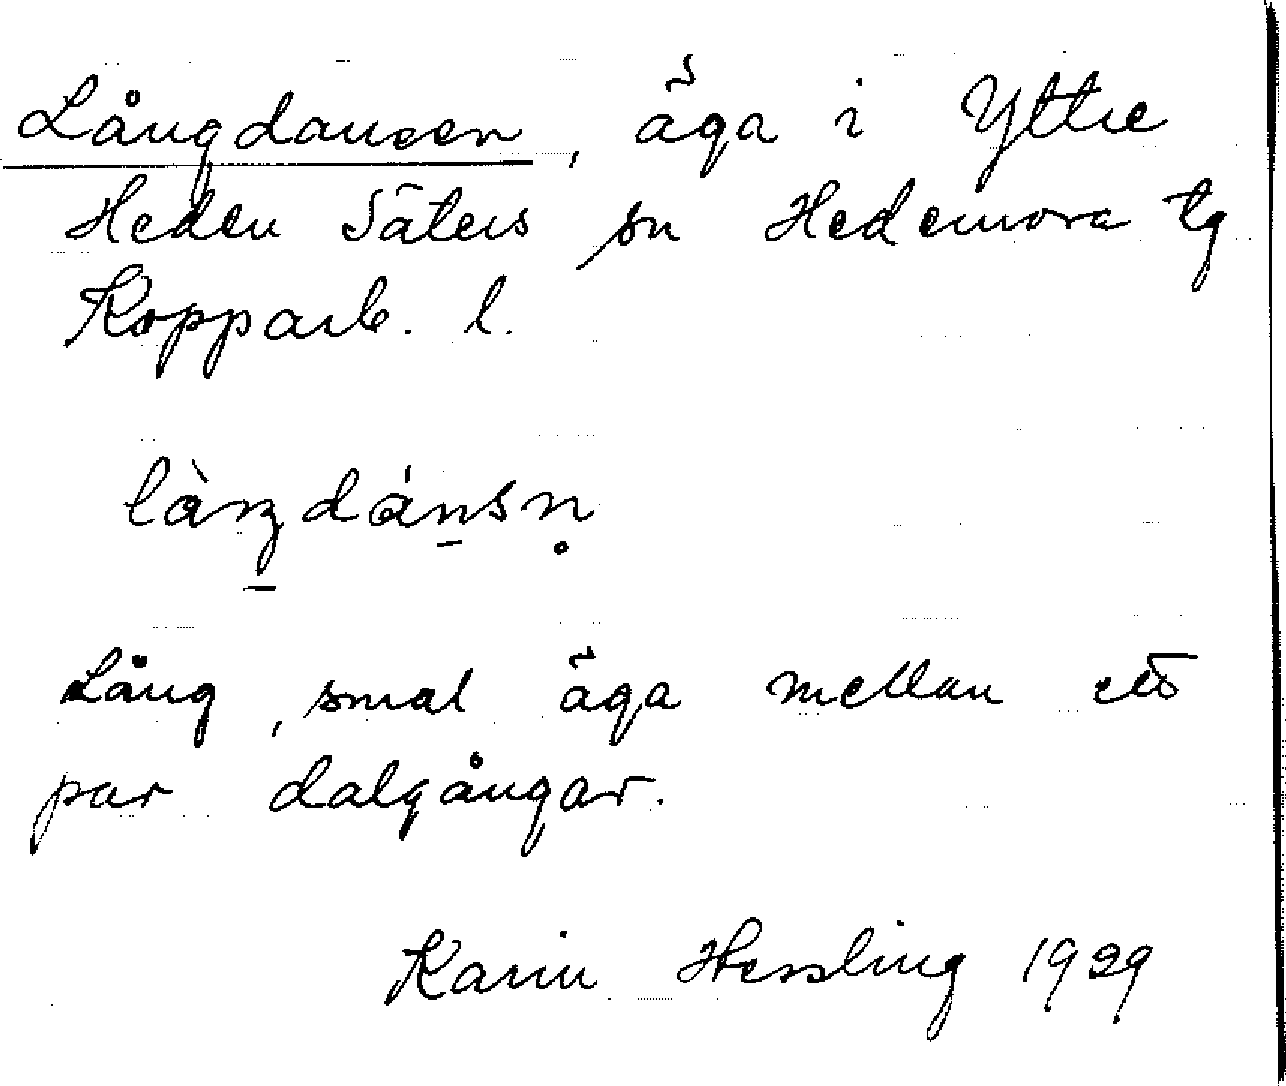 Långdansen, äga i Yttre
Heden Säters sn Hedemora tg
Kopparb. l.
làŋdánsn̥
Lång, smal äga mellan ett
par dalgångar.
Karin Hessling 1929